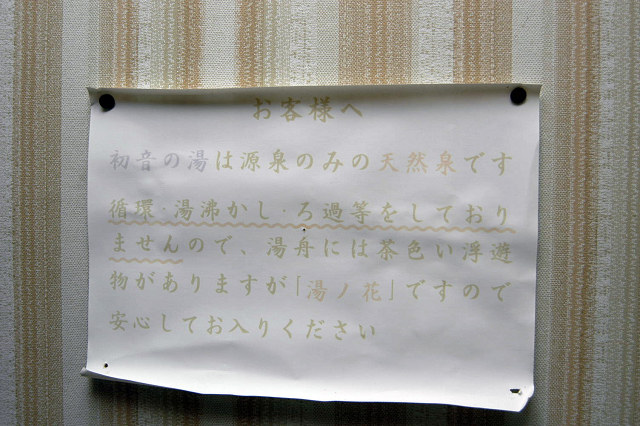 お客様へ
初音の湯は源泉のみの天然泉です
循環・湯沸かし・ろ過等をしており
ませんので、湯舟には茶色い浮遊
物がありますが「湯ノ花」ですので
安心してお入りください